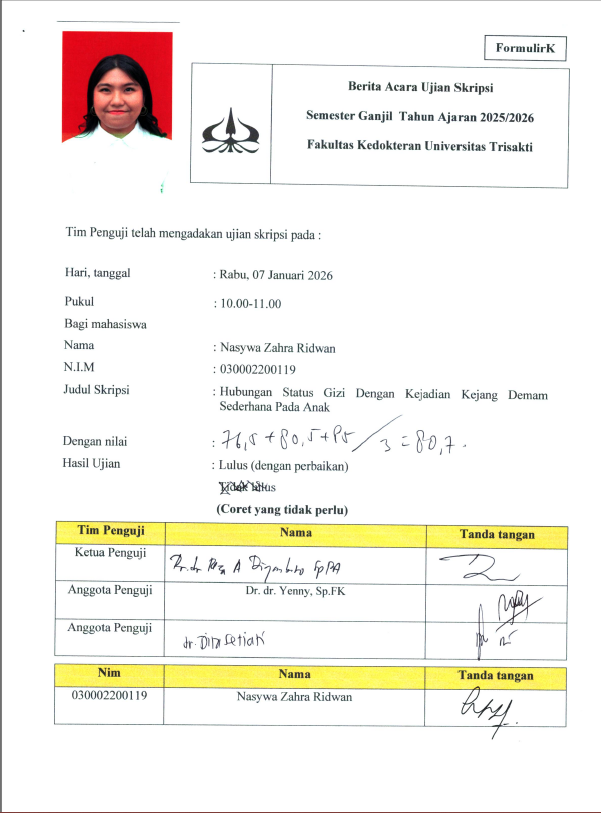 FormulirK
Berita Acara Ujian Skripsi
Semester Ganjil Tahun Ajaran 2025/2026
Fakultas Kedokteran Universitas Trisakti
Tim Penguji telah mengadakan ujian skripsi pada :
Hari, tanggal : Rabu, 07 Januari 2026
Pukul : 10.00-11.00
Bagi mahasiswa
Nama : Nasywa Zahra Ridwan
N.I.M : 030002200119
Judul Skripsi : Hubungan Status Gizi Dengan Kejadian Kejang Demam
Sederhana Pada Anak
Dengan nilai : 76,5 + 80,5 + 85 / 3 = 80,7.
Hasil Ujian : Lulus (dengan perbaikan)
Tidak lulus
(Coret yang tidak perlu)
Tim Penguji Nama Tanda tangan
Ketua Penguji Dr. dr A SpPA
Anggota Penguji Dr. dr. Yenny, Sp.FK
Anggota Penguji dr. Dita Setiati
Nim Nama Tanda tangan
030002200119 Nasywa Zahra Ridwan